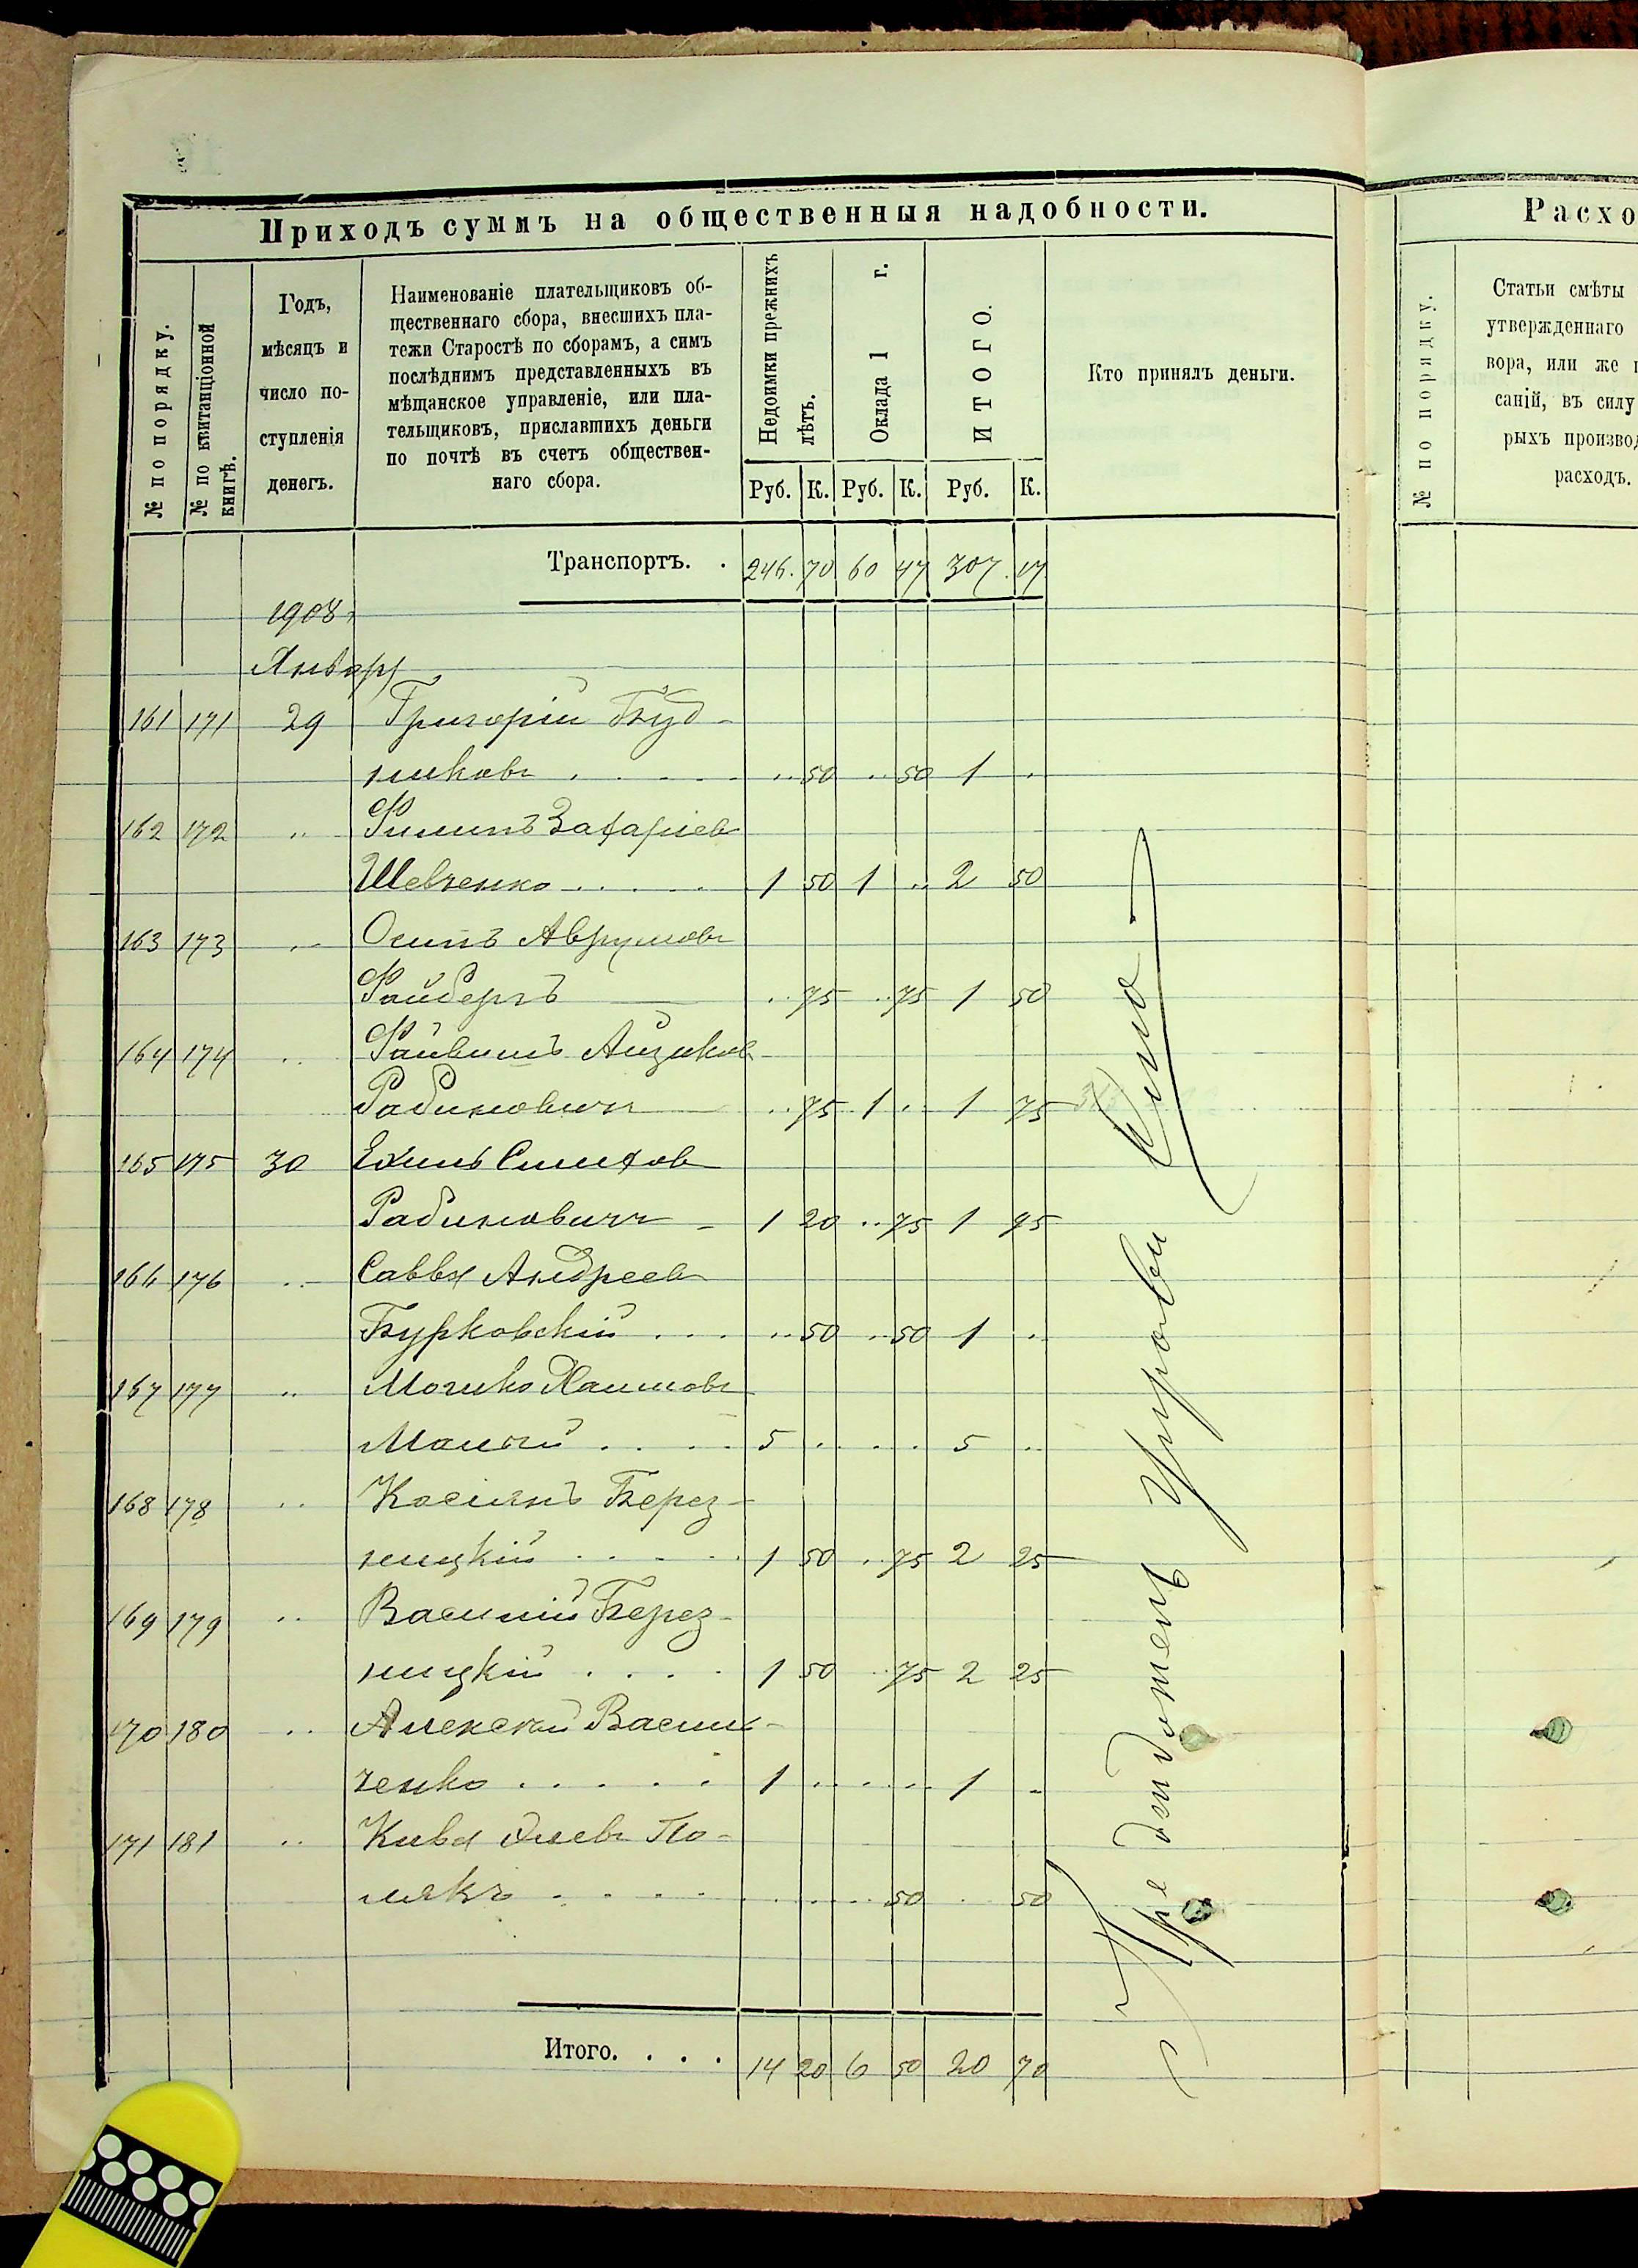 Приходъ суммъ на общественныя надобности.
№ по порядку.
№ по квитанціонной книгѣ.
Годъ,
мѣсяцъ и
число по-
ступленія
денегъ.
Наименованіе плательщиковъ об-
щественнаго сбора, внесшихъ пла-
тежи Старостѣ по сборамъ, а симъ
послѣднимъ представленныхъ въ
мѣщанское управленіе, или пла-
тельщиковъ, приславшихъ деньги
по почтѣ въ счетъ обществен-
наго сбора.
Недоимки прежнихъ лѣтъ.
Оклада 1 г.
ИТОГО.
Руб. К. Руб. К. Руб. К.
Кто принялъ деньги.
Транспортъ. . 246. 70 60 47 307. 17
1908 г
Январь
161 171 29 Григорій Буд-
никовъ . . . . .. 50 .. 50 1 .
162 172 .. Филипъ Захаріев
Шевченко . . . . . 1 50 1 .. 2 50
163 173 .. Осипъ Аврумовъ
Файбергъ .. 75 .. 75 1 50
164 174 .. Файвишъ Айзиков
Рабиновичъ .. 75 1 .. 1 75
165 175 30
Рабиновичъ 1 20 .. 75 1 95
166 176 .. Савва Андреев
Бурковскій . . . .. 50 .. 50 1 .
167 177 .. Хаимовъ
Малый . . . . 5 . . . 5 ..
168 178 .. Касіянъ Берез-
ницкій . . . . . 1 50 .. 75 2 25
169 179 .. Василій Берез-
ницкій . . . . 1 50 .. 75 2 25
170 180 .. Алексѣй Василь-
ченко . . . . . 1 . . . . 1 -
171 181 .. Кива По-
лякъ . . . . . . . . 50 . 50
Итого. . . . 14 20 6 50 20 70
Расхо
№ по порядку.
Статьи смѣты
утвержденнаго
вора, или же
саній, въ силу
рыхъ производ
расходъ.